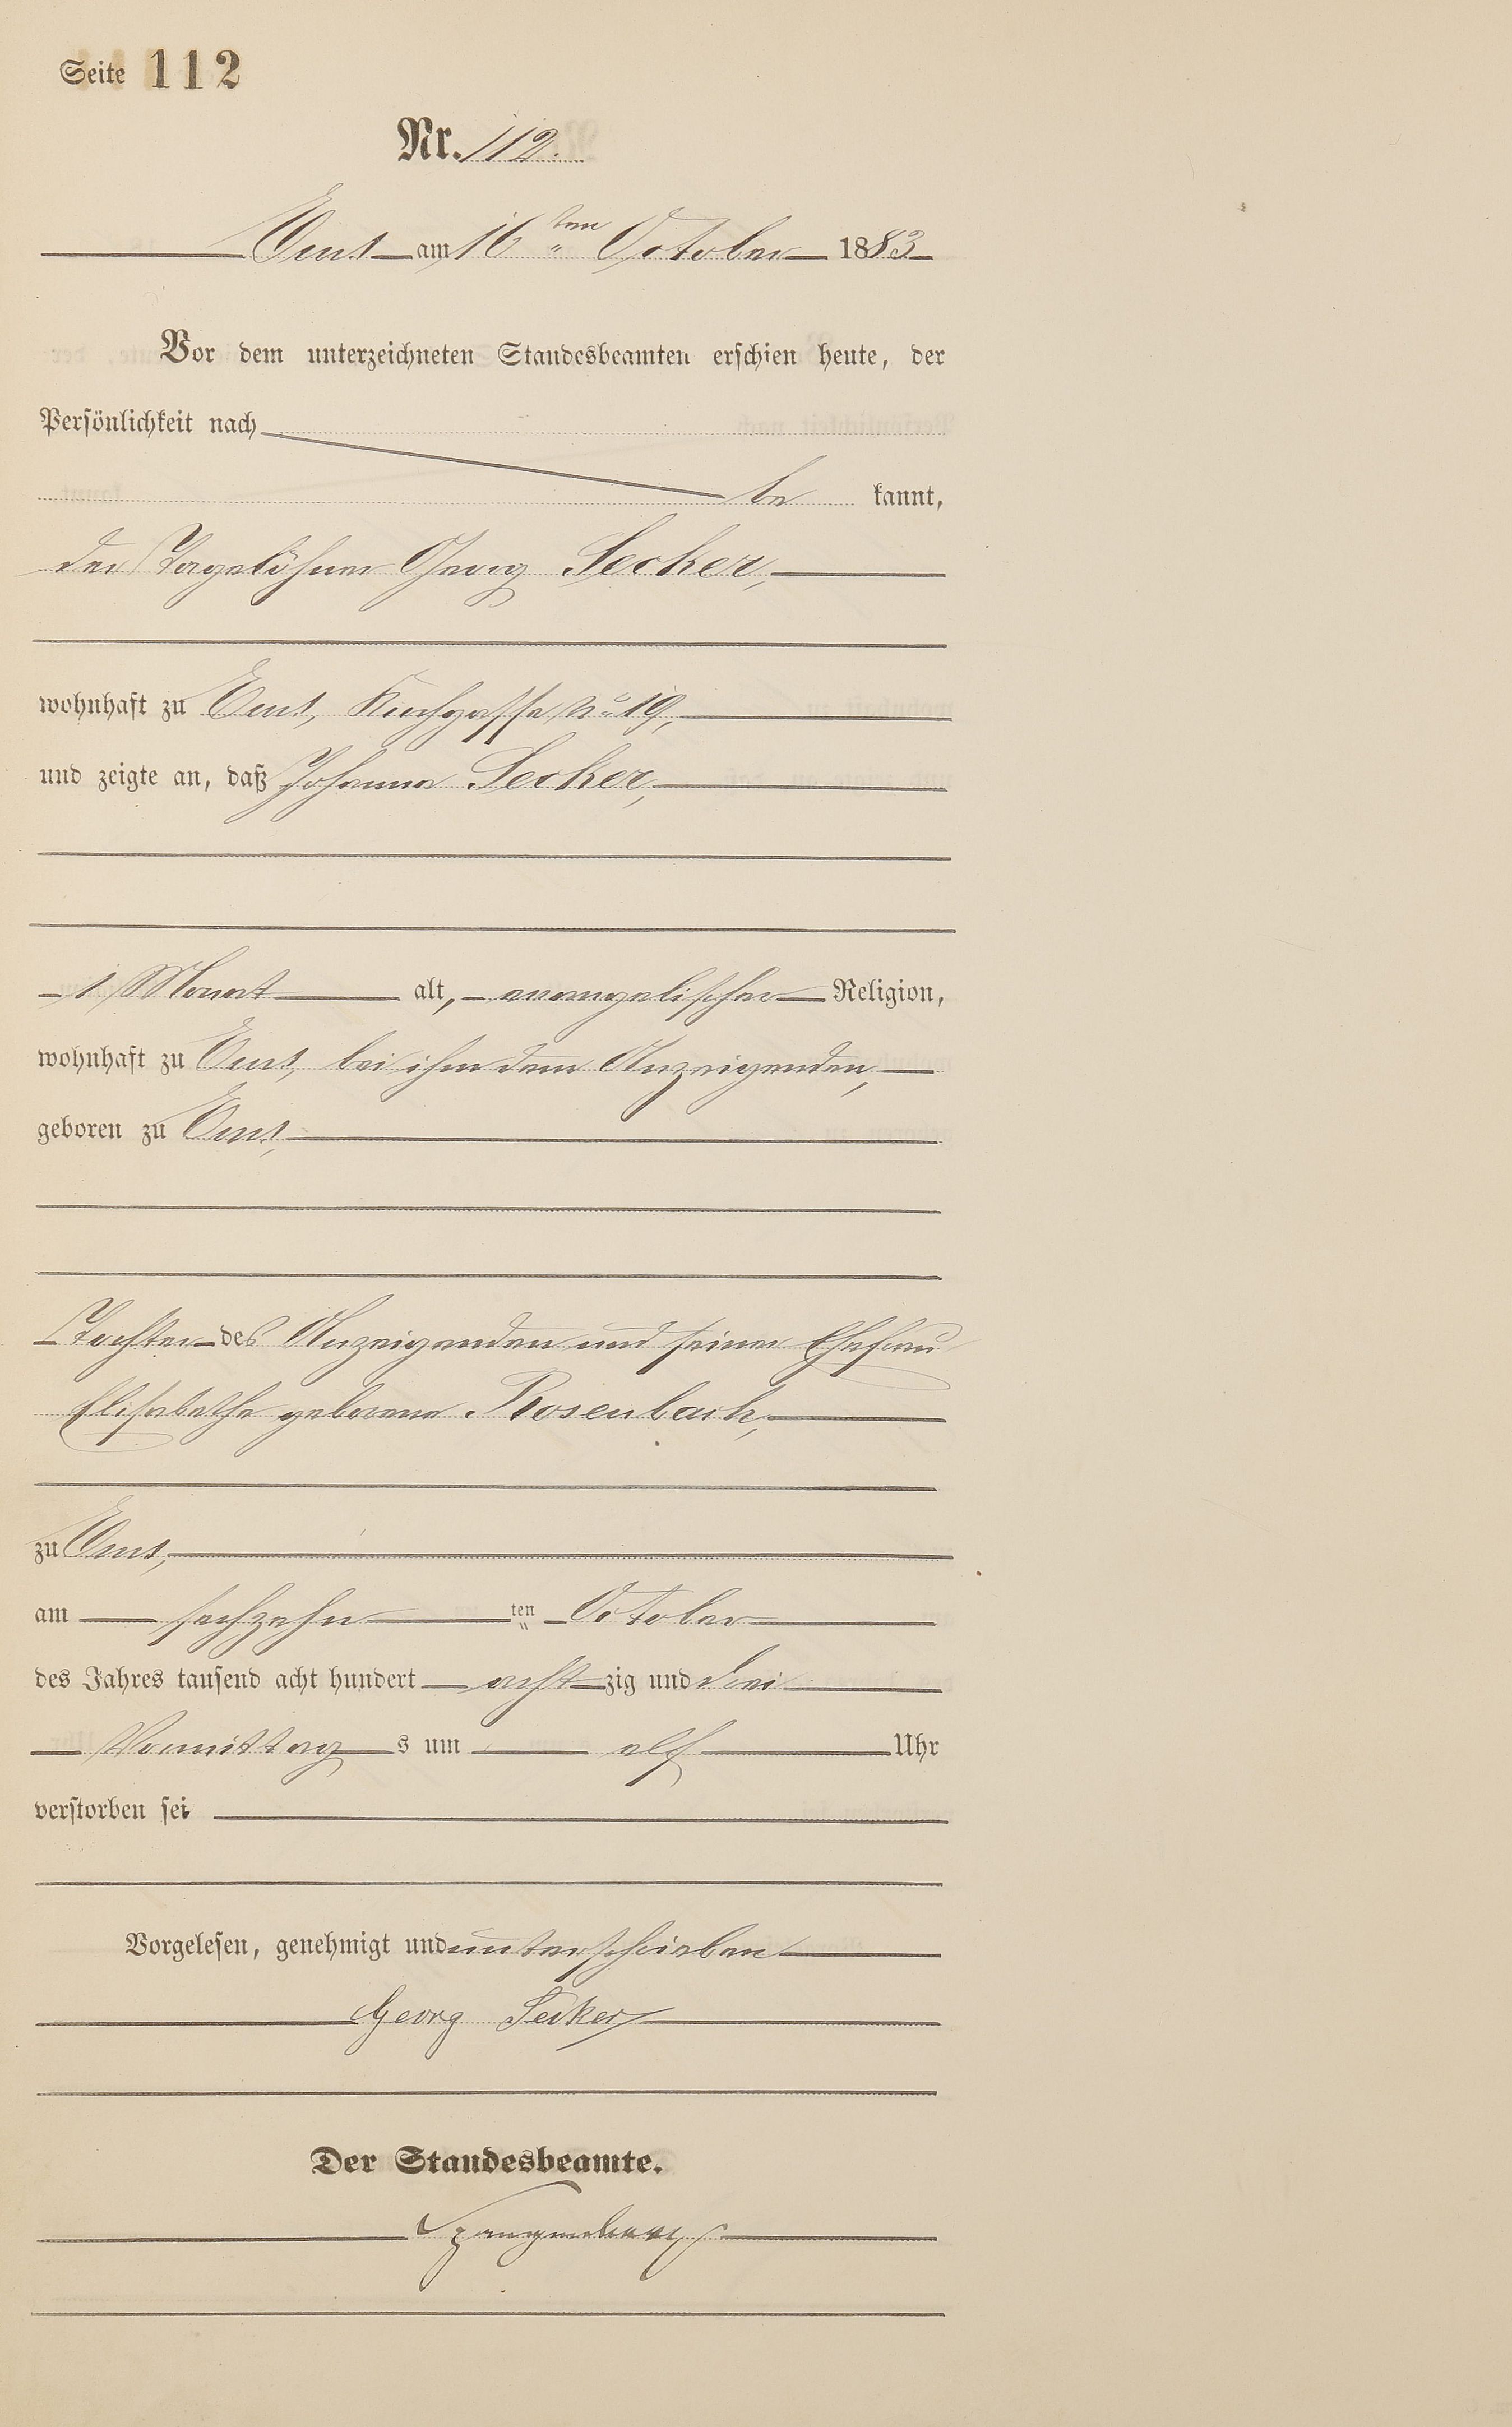 Seite 112
Nr. 112.
Ems am 16ten October 1883
Vor dem unterzeichneten Standesbeamten erschien heute, der
Persönlichkeit nach
be kannt,
der Tagelöhner Georg Secker,
wohnhaft zu Ems, Kirchgasse No 19,
und zeigte an, daß Johanna Secker,
1 Monat alt, evangelischer Religion,
wohnhaft zu Ems, bei ihm dem Anzeigenden,
geboren zu Ems,
Tochter des Anzeigenden und seiner Ehefrau
Elisabethe geborene Rosenbach,
zu Ems,
am sechzehn ten October
des Jahres tausend acht hundert acht zig und drei
Vormittag s um elf Uhr
verstorben sei
Vorgelesen, genehmigt und unterschrieben
Georg Secker
Der Standesbeamte.
Spangenberg